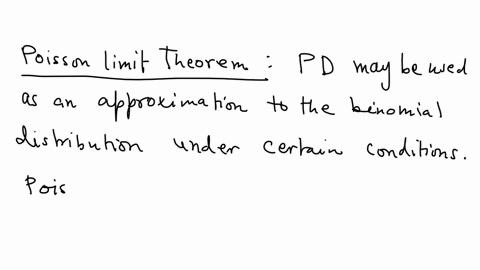 Poisson limit Theorem : PD may be used
as an approximation to the binomial
distribution under certain conditions.
Pois